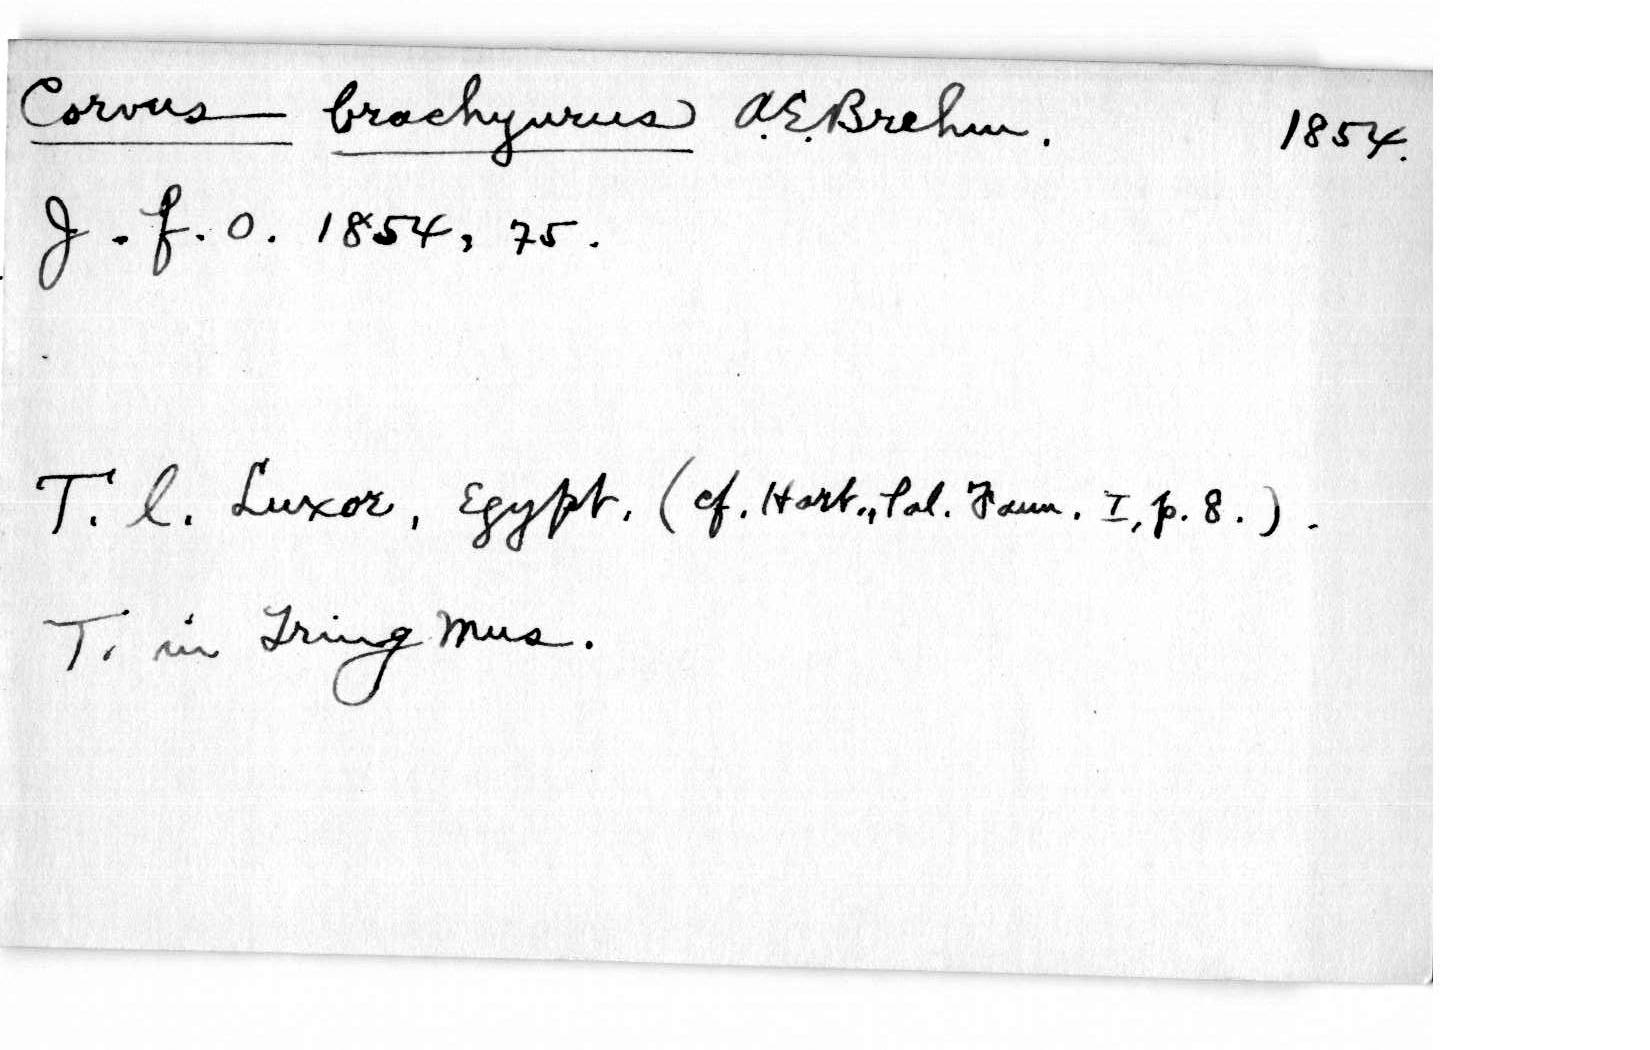 Corvus brachyurus A.E. Brehm. 1854.
J. f. O. 1854, 75.
T. l. Luxor, Egypt. (cf. Hart., Pal. Faun. I, p. 8.).
T. in Tring Mus.